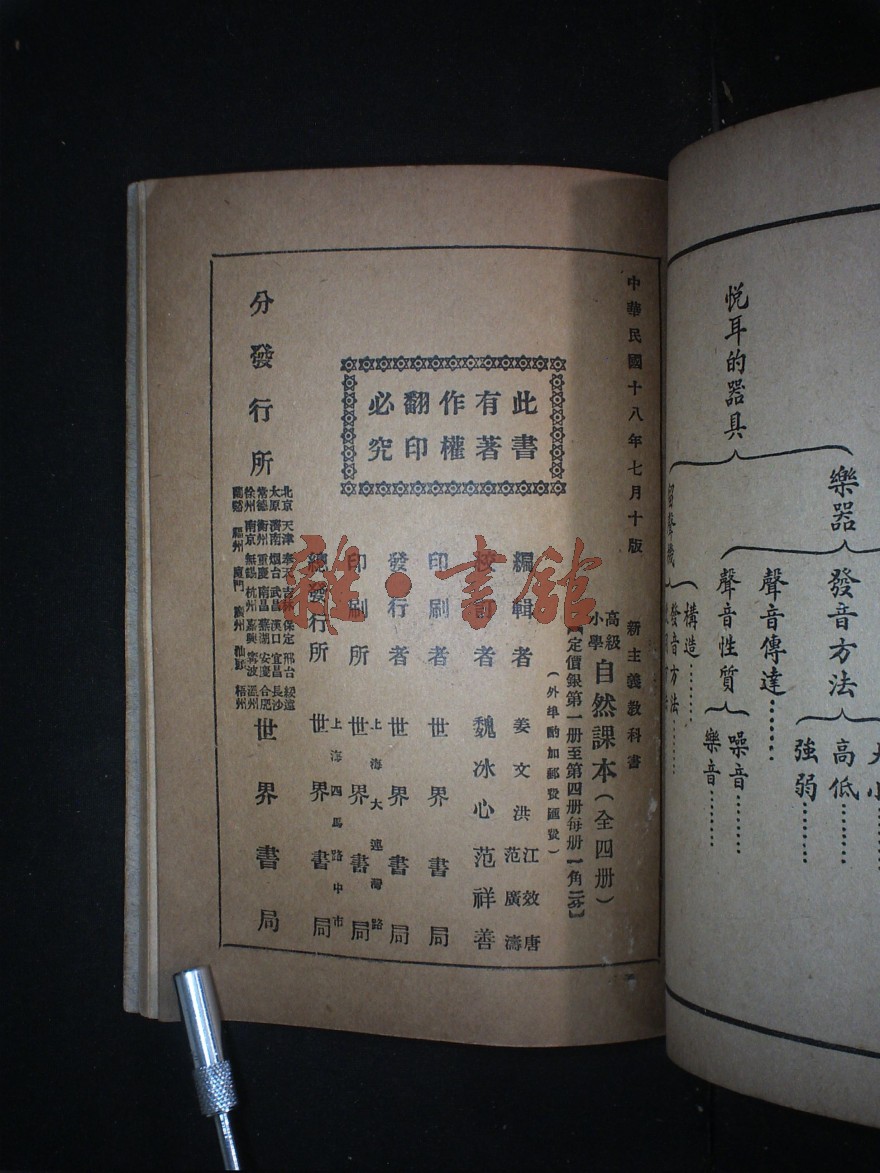 悅耳的器具
樂器
發音方法
大小
高低
強弱
聲音傳達
聲音性質
噪音
樂音
構造
發音方法
中華民國十八年七月十版
新主義教科書
高級小學自然課本（全四册）
定價銀第一册至第四册每册一角二分
（外埠酌加郵費匯費）
此書
有著
作權
翻印
必究
編輯者 姜文洪 江效唐
范廣濤
校訂者 魏冰心 范祥善
印刷者 世界書局
發行者 世界書局
印刷所 上海大連灣路 世界書局
總發行所 上海四馬路中市 世界書局
分發行所
北京 天津 奉天 吉林 保定 邢台 綏遠
太原 濟南 烟台 武昌 漢口 宜昌 長沙
常德 衡州 重慶 南昌 蕪湖 安慶 合肥
徐州 南京 無錫 杭州 嘉興 寧波 溫州
蘭谿 福州 廈門 廣州 汕頭 梧州
世界書局
雜·書館